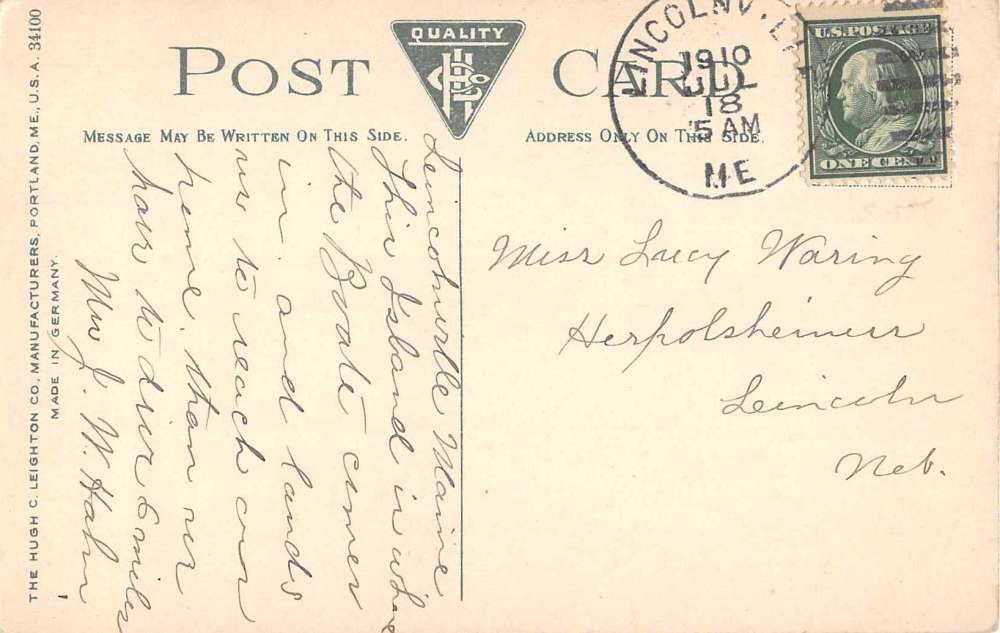 POST CARD
QUALITY
HCL Co
MESSAGE MAY BE WRITTEN ON THIS SIDE.
ADDRESS ONLY ON THIS SIDE.
LINCOLNVILLE
1910
JUL
18
5 AM
ME
U.S. POSTAGE
ONE CENT
Lincolnville Maine
This Island is where
the Boate comes
in. and lands
us to reach our
home. than we
have to drive 6 miles
Mrs J. W. Hahn
Miss Lucy Waring
Herpolsheimers
Lincoln
Neb.
THE HUGH C. LEIGHTON CO., MANUFACTURERS, PORTLAND, ME., U.S.A. 34100
MADE IN GERMANY.
1